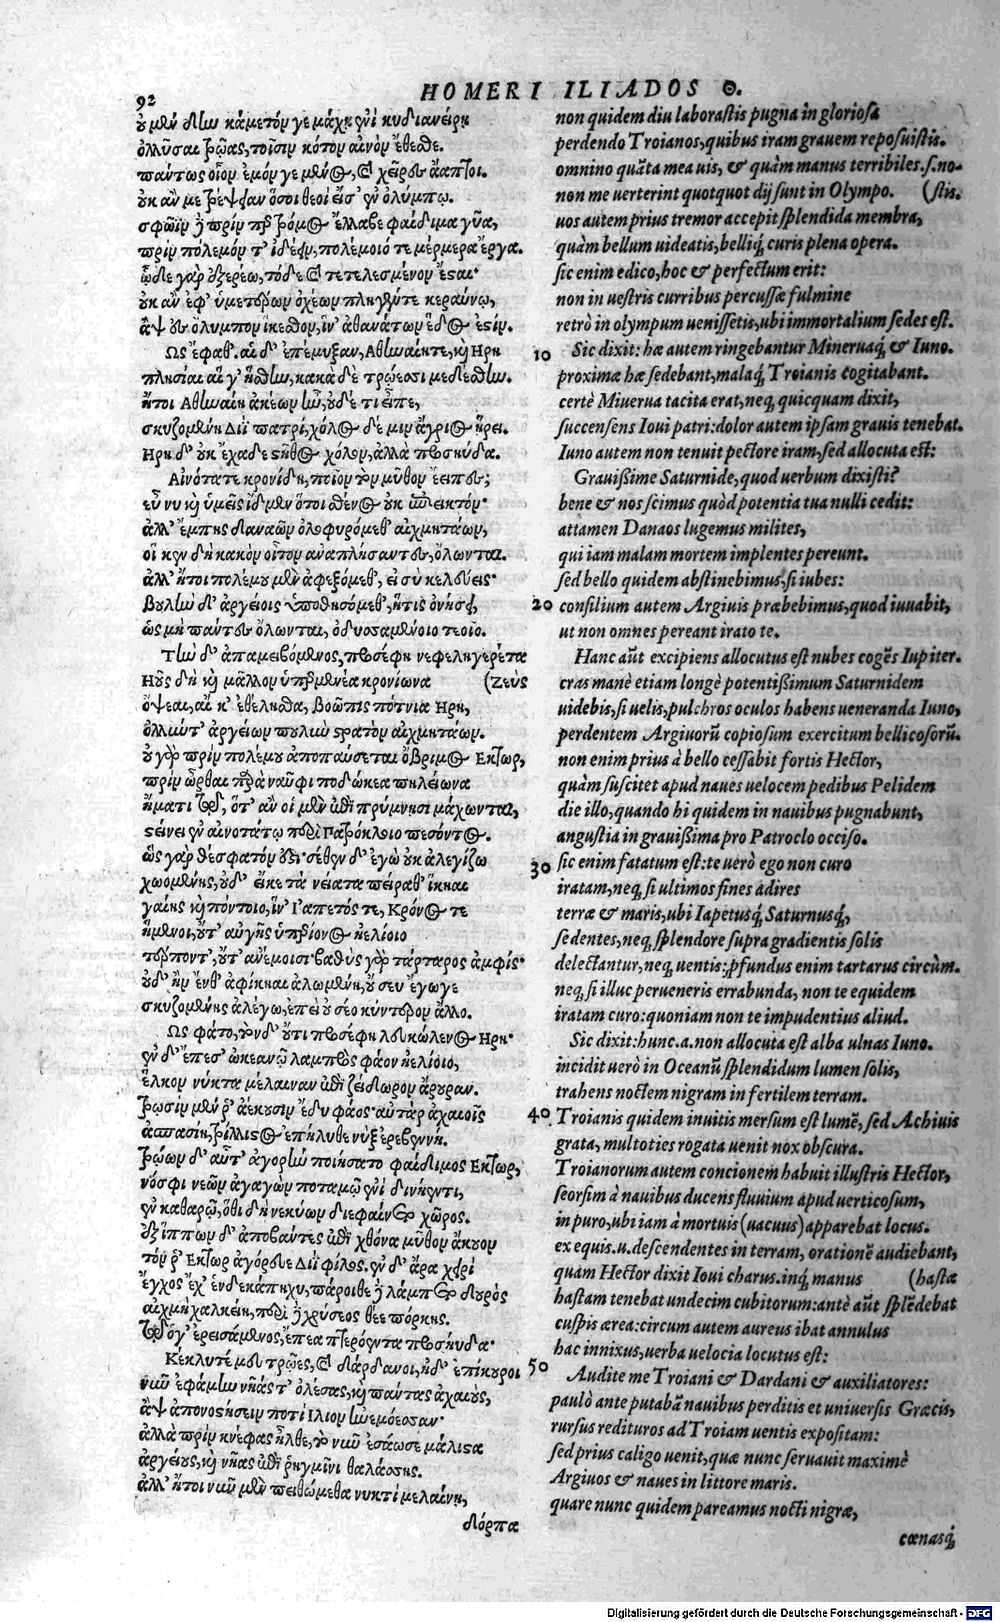 92
HOMERI ILIADOS Θ.
οὐ μὲν δὴν κάμετόν γε μάχῃ ἐνὶ κυδιανείρῃ
ὀλλῦσαι Τρῶας, τοῖσιν κότον αἰνὸν ἔθεσθε.
πάντως οἷον ἐμόν γε μένος, καὶ χεῖρες ἄαπτοι.
οὐκ ἄν με τρέψειαν ὅσοι θεοί εἰσ' ἐν ὀλύμπῳ.
σφῶϊν δὲ πρίν περ τρόμος ἔλλαβε φαίδιμα γυῖα,
πρὶν πόλεμόν τ' ἰδέειν, πολέμοιό τε μέρμερα ἔργα.
ὧδε γὰρ ἐξερέω, τόδε καὶ τετελεσμένον ἔσαι·
οὐκ ἂν ἐφ' ὑμετέρων ὀχέων πληγέντε κεραύνῳ,
ἂψ ἐς ὄλυμπον ἵκεσθον, ἵν' ἀθανάτων ἕδος ἐστίν.
Ὣς ἔφαθ'. αἱ δ' ἐπέμυξαν, Αθηναίη τε, καὶ Ηρη
πλησίαι αἵ γ' ἥσθην, κακὰ δὲ τρώεσσι μεδέσθην.
ἤτοι Αθηναίη ἀκέων ἦν, οὐδέ τι εἶπε,
σκυζομένη Διῒ πατρί, χόλος δέ μιν ἄγριος ᾕρει.
Ηρη δ' οὐκ ἔχαδε στῆθος χόλον, ἀλλὰ προσηύδα.
Αἰνότατε κρονίδη, ποῖον τὸν μῦθον ἔειπες;
εὖ νυ καὶ ἡμεῖς ἴδμεν ὅτοι σθένος οὐκ ἐπιεικτόν·
ἀλλ' ἔμπης δαναῶν ὀλοφυρόμεθ' αἰχμητάων,
οἵ κεν δὴ κακὸν οἶτον ἀναπλήσαντες, ὄλωνται.
ἀλλ' ἤτοι πολέμου μὲν ἀφεξόμεθ', εἰ σὺ κελεύεις·
βουλὴν δ' ἀργείοις ὑποθησόμεθ', ἥτις ὀνήσει,
ὡς μὴ πάντες ὄλωνται, ὀδυσσαμένοιο τεοῖο.
Τὴν δ' ἀπαμειβόμενος, προσέφη νεφεληγερέτα
Ηοῦς δὴ καὶ μᾶλλον ὑπερμενέα κρονίωνα (Ζεύς
ὄψεαι, αἴ κ' ἐθέλησθα, βοῶπις πότνια Ηρη,
ὀλλύντ' ἀργείων πουλὺν στρατὸν αἰχμητάων.
οὐ γὰρ πρὶν πολέμου ἀποπαύσεται ὄβριμος Εκτωρ,
πρὶν ὦρθαι παρὰ ναῦφι ποδώκεα πηλείωνα
ἤματι τῷ, ὅτ' ἂν οἱ μὲν ἐπὶ πρύμνῃσι μάχωνται,
στείνει ἐν αἰνοτάτῳ περὶ Πατρόκλοιο πεσόντος.
ὣς γὰρ θέσφατόν ἐστι· σέθεν δ' ἐγὼ οὐκ ἀλεγίζω
χωομένης, οὐδ' εἴκε τὰ νείατα πείραθ' ἵκηαι
γαίης καὶ πόντοιο, ἵν' Ιαπετός τε, Κρόνος τε
ἥμενοι, οὔτ' αὐγῇς ὑπερίονος ἠελίοιο
τέρποντ', οὔτ' ἀνέμοισι· βαθὺς γὰρ τάρταρος ἀμφίς·
οὐδ' ἢν ἔνθ' ἀφίκηαι ἀλωμένη, οὔ σευ ἔγωγε
σκυζομένης ἀλέγω, ἐπεὶ οὐ σέο κύντερον ἄλλο.
Ὣς φάτο, τὸν δ' οὔτι προσέφη λευκώλενος Ηρη·
ἐν δ' ἔπεσ' ὠκεανῷ λαμπρὸν φάος ἠελίοιο,
ἕλκον νύκτα μέλαιναν ἐπὶ ζείδωρον ἄρουραν.
τρωσὶν μέν ῥ' ἀέκουσιν ἔδυ φάος· αὐτὰρ ἀχαιοῖς
ἀσπασίη, τρίλλιστος ἐπήλυθε νὺξ ἐρεβεννή.
τρώων δ' αὖτ' ἀγορὴν ποιήσατο φαίδιμος Εκτωρ,
νόσφι νεῶν ἀγαγὼν ποταμῷ ἐνὶ δινήεντι,
ἐν καθαρῷ, ὅθι δὴ νεκύων διεφαίνετο χῶρος.
ἐξ ἵππων δ' ἀποβάντες ἐπὶ χθόνα μῦθον ἄκουον
τόν ῥ' Εκτωρ ἀγόρευε Διῒ φίλος. ἐν δ' ἄρα χειρὶ
ἔγχος ἔχ' ἑνδεκάπηχυ, πάροιθε δὲ λάμπετο δουρὸς
αἰχμὴ χαλκείη, περὶ δὲ χρύσεος θέε πόρκης.
τῷ ὅγ' ἐρεισάμενος, ἔπεα πτερόεντα προσηύδα·
Κέκλυτέ μευ τρῶες, καὶ δάρδανοι, ἠδ' ἐπίκουροι
νῦν ἐφάμην νῆάς τ' ὀλέσας, καὶ πάντας ἀχαιούς,
ἂψ ἀπονοστήσειν ποτὶ Ιλιον ἠνεμόεσσαν·
ἀλλὰ πρὶν κνέφας ἦλθε, τὸ νῦν ἐσάωσε μάλιστα
ἀργείους, καὶ νῆας ἐπὶ ῥηγμῖνι θαλάσσης.
ἀλλ' ἤτοι νῦν μὲν πειθώμεθα νυκτὶ μελαίνῃ,
δόρπα
non quidem diu laborastis pugna in gloriosa
perdendo Troianos, quibus iram grauem reposuistis.
omnino quāta mea uis, & quàm manus terribiles.s.no-
non me uerterint quotquot dij sunt in Olympo. (stis.
uos autem prius tremor accepit splendida membra,
quàm bellum uideatis, belliq́; curis plena opera.
sic enim edico, hoc & perfectum erit:
non in uestris curribus percussæ fulmine
retrò in olympum uenissetis, ubi immortalium sedes est.
10 Sic dixit: hæ autem ringebantur Mineruaq́; & Iuno.
proximæ hæ sedebant, malaq́; Troianis cogitabant.
certè Miuerua tacita erat, neq; quicquam dixit,
succensens Ioui patri: dolor autem ipsam grauis tenebat.
Iuno autem non tenuit pectore iram, sed allocuta est:
Grauißime Saturnide, quod uerbum dixisti?
bene & nos scimus quòd potentia tua nulli cedit:
attamen Danaos lugemus milites,
qui iam malam mortem implentes pereunt.
sed bello quidem abstinebimus, si iubes:
20 consilium autem Argiuis præbebimus, quod iuuabit,
ut non omnes pereant irato te.
Hanc aūt excipiens allocutus est nubes cogēs Iupiter.
cras manè etiam longè potentißimum Saturnidem
uidebis, si uelis, pulchros oculos habens ueneranda Iuno,
perdentem Argiuorū copiosum exercitum bellicosorū.
non enim prius à bello cessabit fortis Hector,
quàm suscitet apud naues uelocem pedibus Pelidem
die illo, quando hi quidem in nauibus pugnabunt,
angustia in grauißima pro Patroclo occiso.
30 sic enim fatatum est: te uerò ego non curo
iratam, neq; si ultimos fines adires
terræ & maris, ubi Iapetusq́; Saturnusq́;,
sedentes, neq; splendore supra gradientis solis
delectantur, neq; uentis: ꝓfundus enim tartarus circùm.
neq; si illuc perueneris errabunda, non te equidem
iratam curo: quoniam non te impudentius aliud.
Sic dixit: hunc.a.non allocuta est alba ulnas Iuno.
incidit uerò in Oceanū splendidum lumen solis,
trahens noctem nigram in fertilem terram.
40 Troianis quidem inuitis mersum est lumē, sed Achiuis
grata, multoties rogata uenit nox obscura.
Troianorum autem concionem habuit illustris Hector,
seorsim à nauibus ducens fluuium apud uerticosum,
in puro, ubi iam à mortuis (uacuus) apparebat locus.
ex equis.u.descendentes in terram, orationē audiebant,
quam Hector dixit Ioui charus. inq́; manus (hastæ
hastam tenebat undecim cubitorum: antè aūt splēdebat
cuspis ærea: circum autem aureus ibat annulus
hac innixus, uerba uelocia locutus est:
50 Audite me Troiani & Dardani & auxiliatores:
paulò ante putabā nauibus perditis et uniuersis Græcis,
rursus redituros ad Troiam uentis expositam:
sed prius caligo uenit, quæ nunc seruauit maximè
Argiuos & naues in littore maris.
quare nunc quidem pareamus nocti nigræ,
cœnasq́;
Digitalisierung gefördert durch die Deutsche Forschungsgemeinschaft - DFG